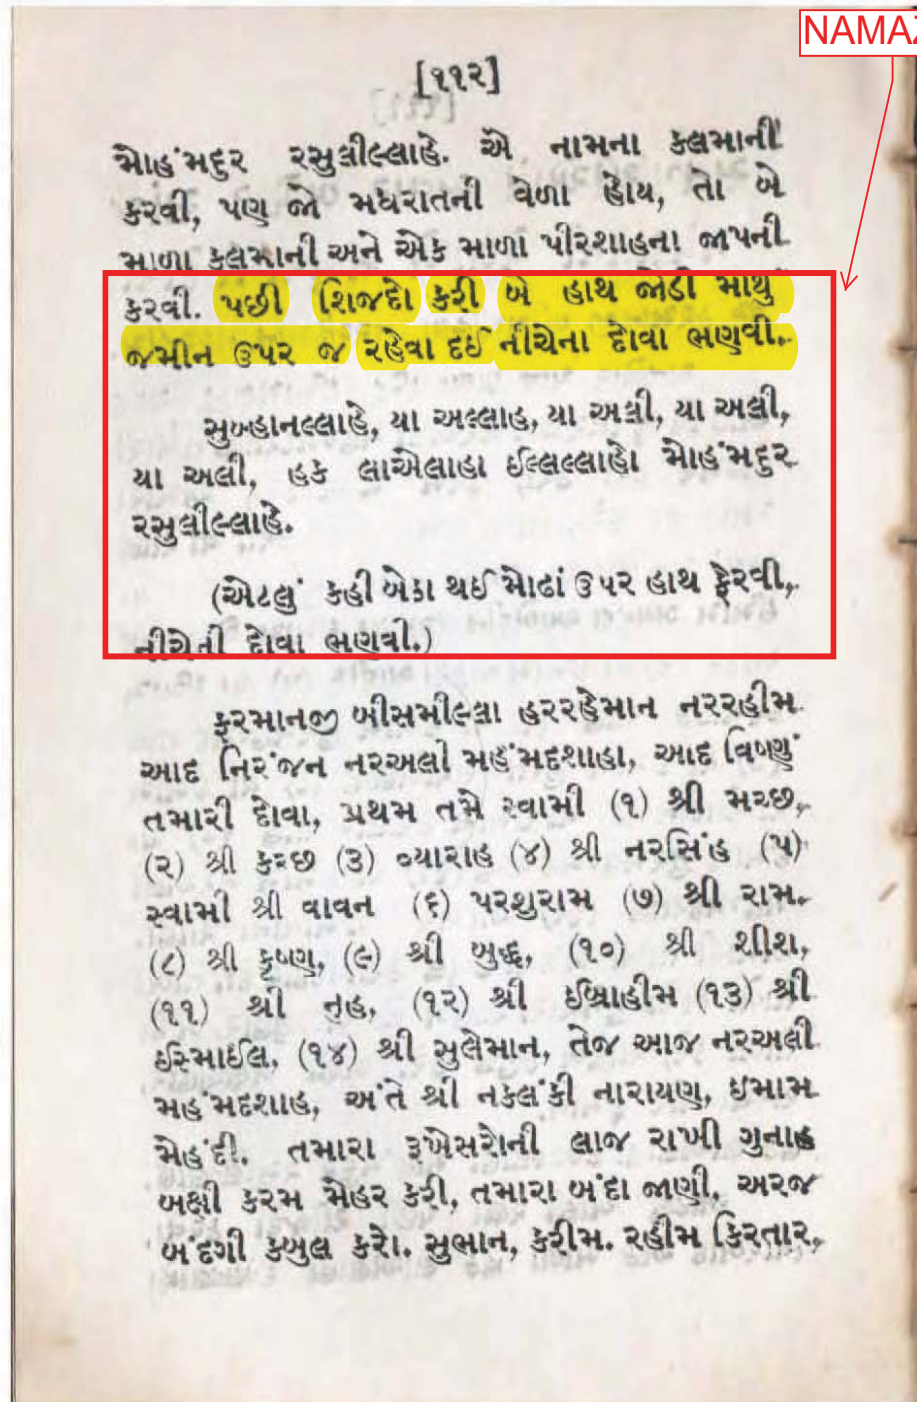 NAMAZ
[૧૧૨]
મોહંમદુર રસુલીલ્લાહે. એ નામના કલમાની
કરવી, પણ જો મધરાતની વેળા હોય, તો બે
માળા કલમાની અને એક માળા પીરશાહના જાપની
કરવી. પછી શિજદો કરી બે હાથ જોડી માથું
જમીન ઉપર જ રહેવા દઈ નીચેના દોવા ભણવી.
સુબ્હાનલ્લાહે, યા અલ્લાહ, યા અલી, યા અલી,
યા અલી, હક લાએલાહા ઈલ્લલ્લાહો મોહંમદુર
રસુલીલ્લાહે.
(એટલું કહી બેઠા થઈ મોઢાં ઉપર હાથ ફેરવી,
નીચેની દોવા ભણવી.)
ફરમાનજી બીસમીલ્લા હરરહેમાન નરરહીમ
આદ નિરંજન નરઅલી મહંમદશાહા, આદ વિષ્ણું
તમારી દોવા, પ્રથમ તમે સ્વામી (૧) શ્રી મચ્છ,
(૨) શ્રી કચ્છ (૩) વ્યારાહ (૪) શ્રી નરસિંહ (૫)
સ્વામી શ્રી વાવન (૬) પરશુરામ (૭) શ્રી રામ.
(૮) શ્રી કૃષ્ણ, (૯) શ્રી બુદ્ધ, (૧૦) શ્રી શીશ,
(૧૧) શ્રી નુહ, (૧૨) શ્રી ઈબ્રાહીમ (૧૩) શ્રી
ઈસ્માઈલ, (૧૪) શ્રી સુલેમાન, તેજ આજ નરઅલી
મહંમદશાહ, અંતે શ્રી નકલંકી નારાયણ, ઇમામ
મેહંદી. તમારા રૂખેસરોની લાજ રાખી ગુનાહ
બક્ષી કરમ મેહર કરી, તમારા બંદા જાણી, અરજ
બંદગી કબુલ કરો. સુભાન, કરીમ. રહીમ કિરતાર,